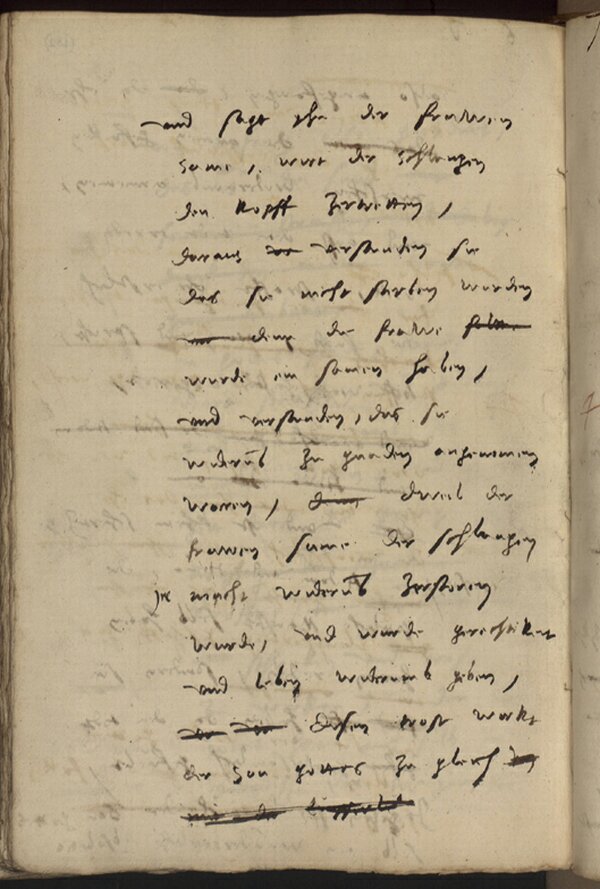 und sagt yhn der frawen
same, wirt der schlangen
den kopff zertretten,
doraus verstunden sie
das sie nicht sterben wurden
denn die frawe
wurde ein samen haben,
und verstunden, das sie
widerumb zu gnaden angenomen
woren, dweil der
frawen same der schlangen
yr macht widerumb zerstoren
wurde, und wurde gerechtikeit
und leben widerumb geben,
disen trost wirkt
der son gottes zu gleich